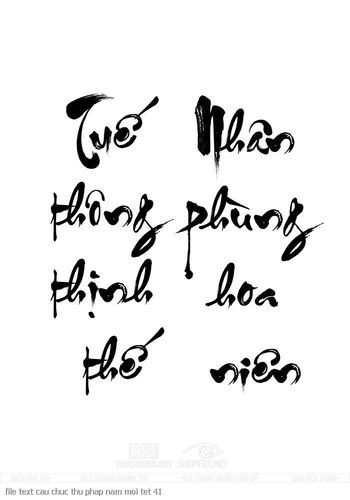 Tuế Nhân
thông phùng
thịnh hoa
thế niên
SHOPFILE.NET
file text cau chuc thu phap nam moi tet 41